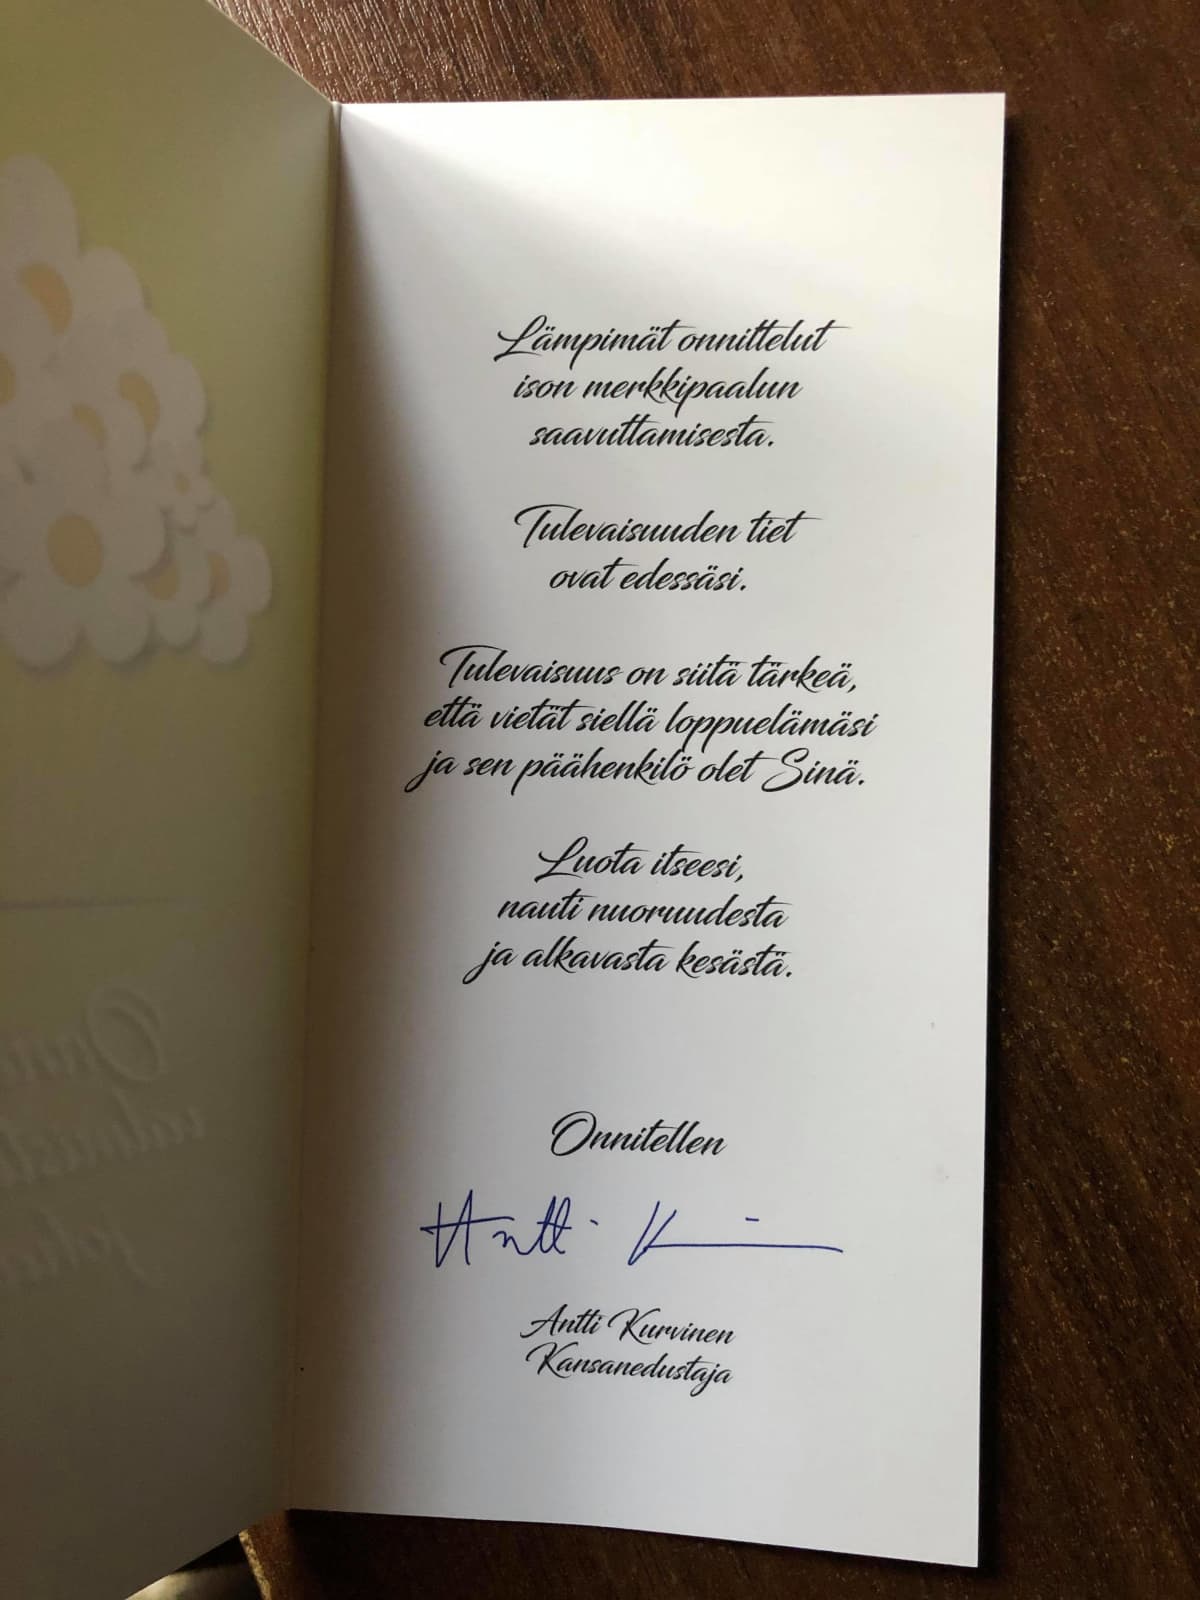 Lämpimät onnittelut
ison merkkipaalun
saavuttamisesta.
Tulevaisuuden tiet
ovat edessäsi.
Tulevaisuus on siitä tärkeä,
että vietät siellä loppuelämäsi
ja sen päähenkilö olet Sinä.
Luota itseesi,
nauti nuoruudesta
ja alkavasta kesästä.
Onnitellen
Antti K
Antti Kurvinen
Kansanedustaja